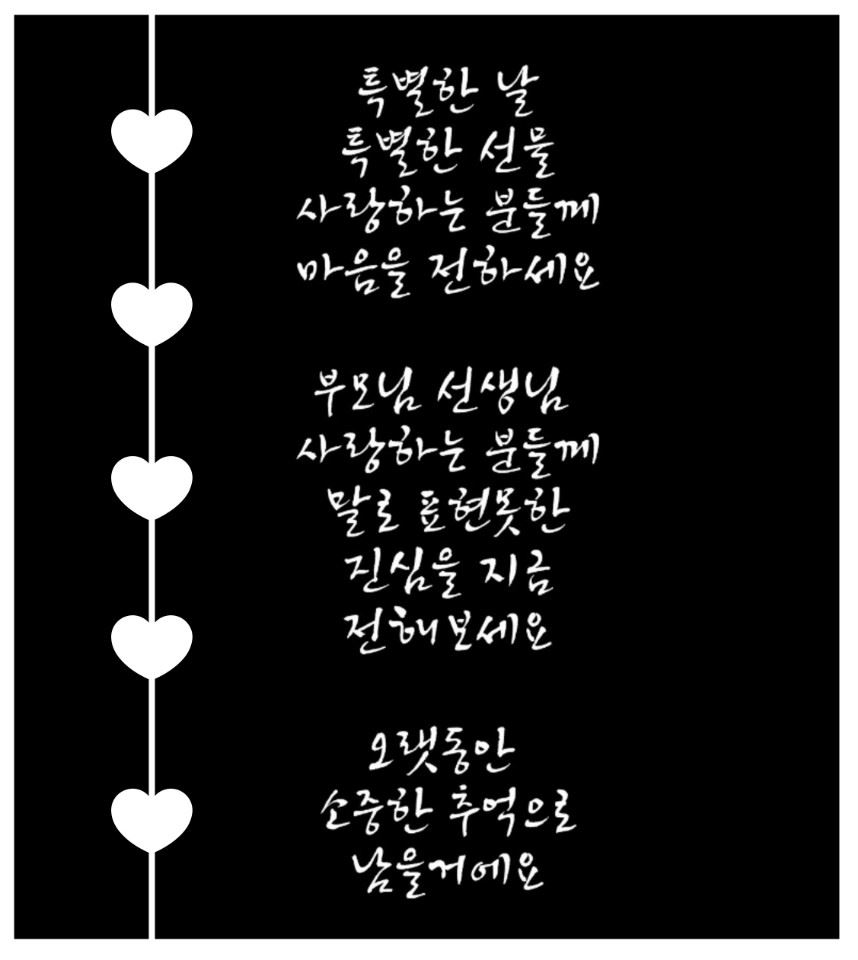 특별한 날
특별한 선물
사랑하는 분들께
마음을 전하세요
부모님 선생님
사랑하는 분들께
말로 표현못한
진심을 지금
전해보세요
오랫동안
소중한 추억으로
남을거에요